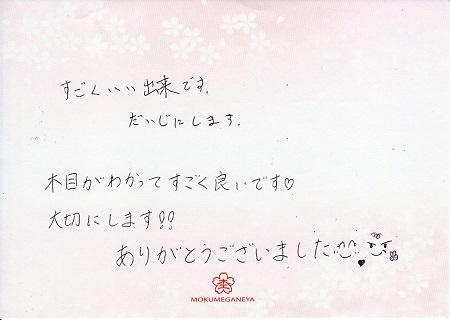 すごくいい出来です。
だいじにします。
木目がわかってすごく良いです♡
大切にします!!
ありがとうございました
MOKUMEGANEYA